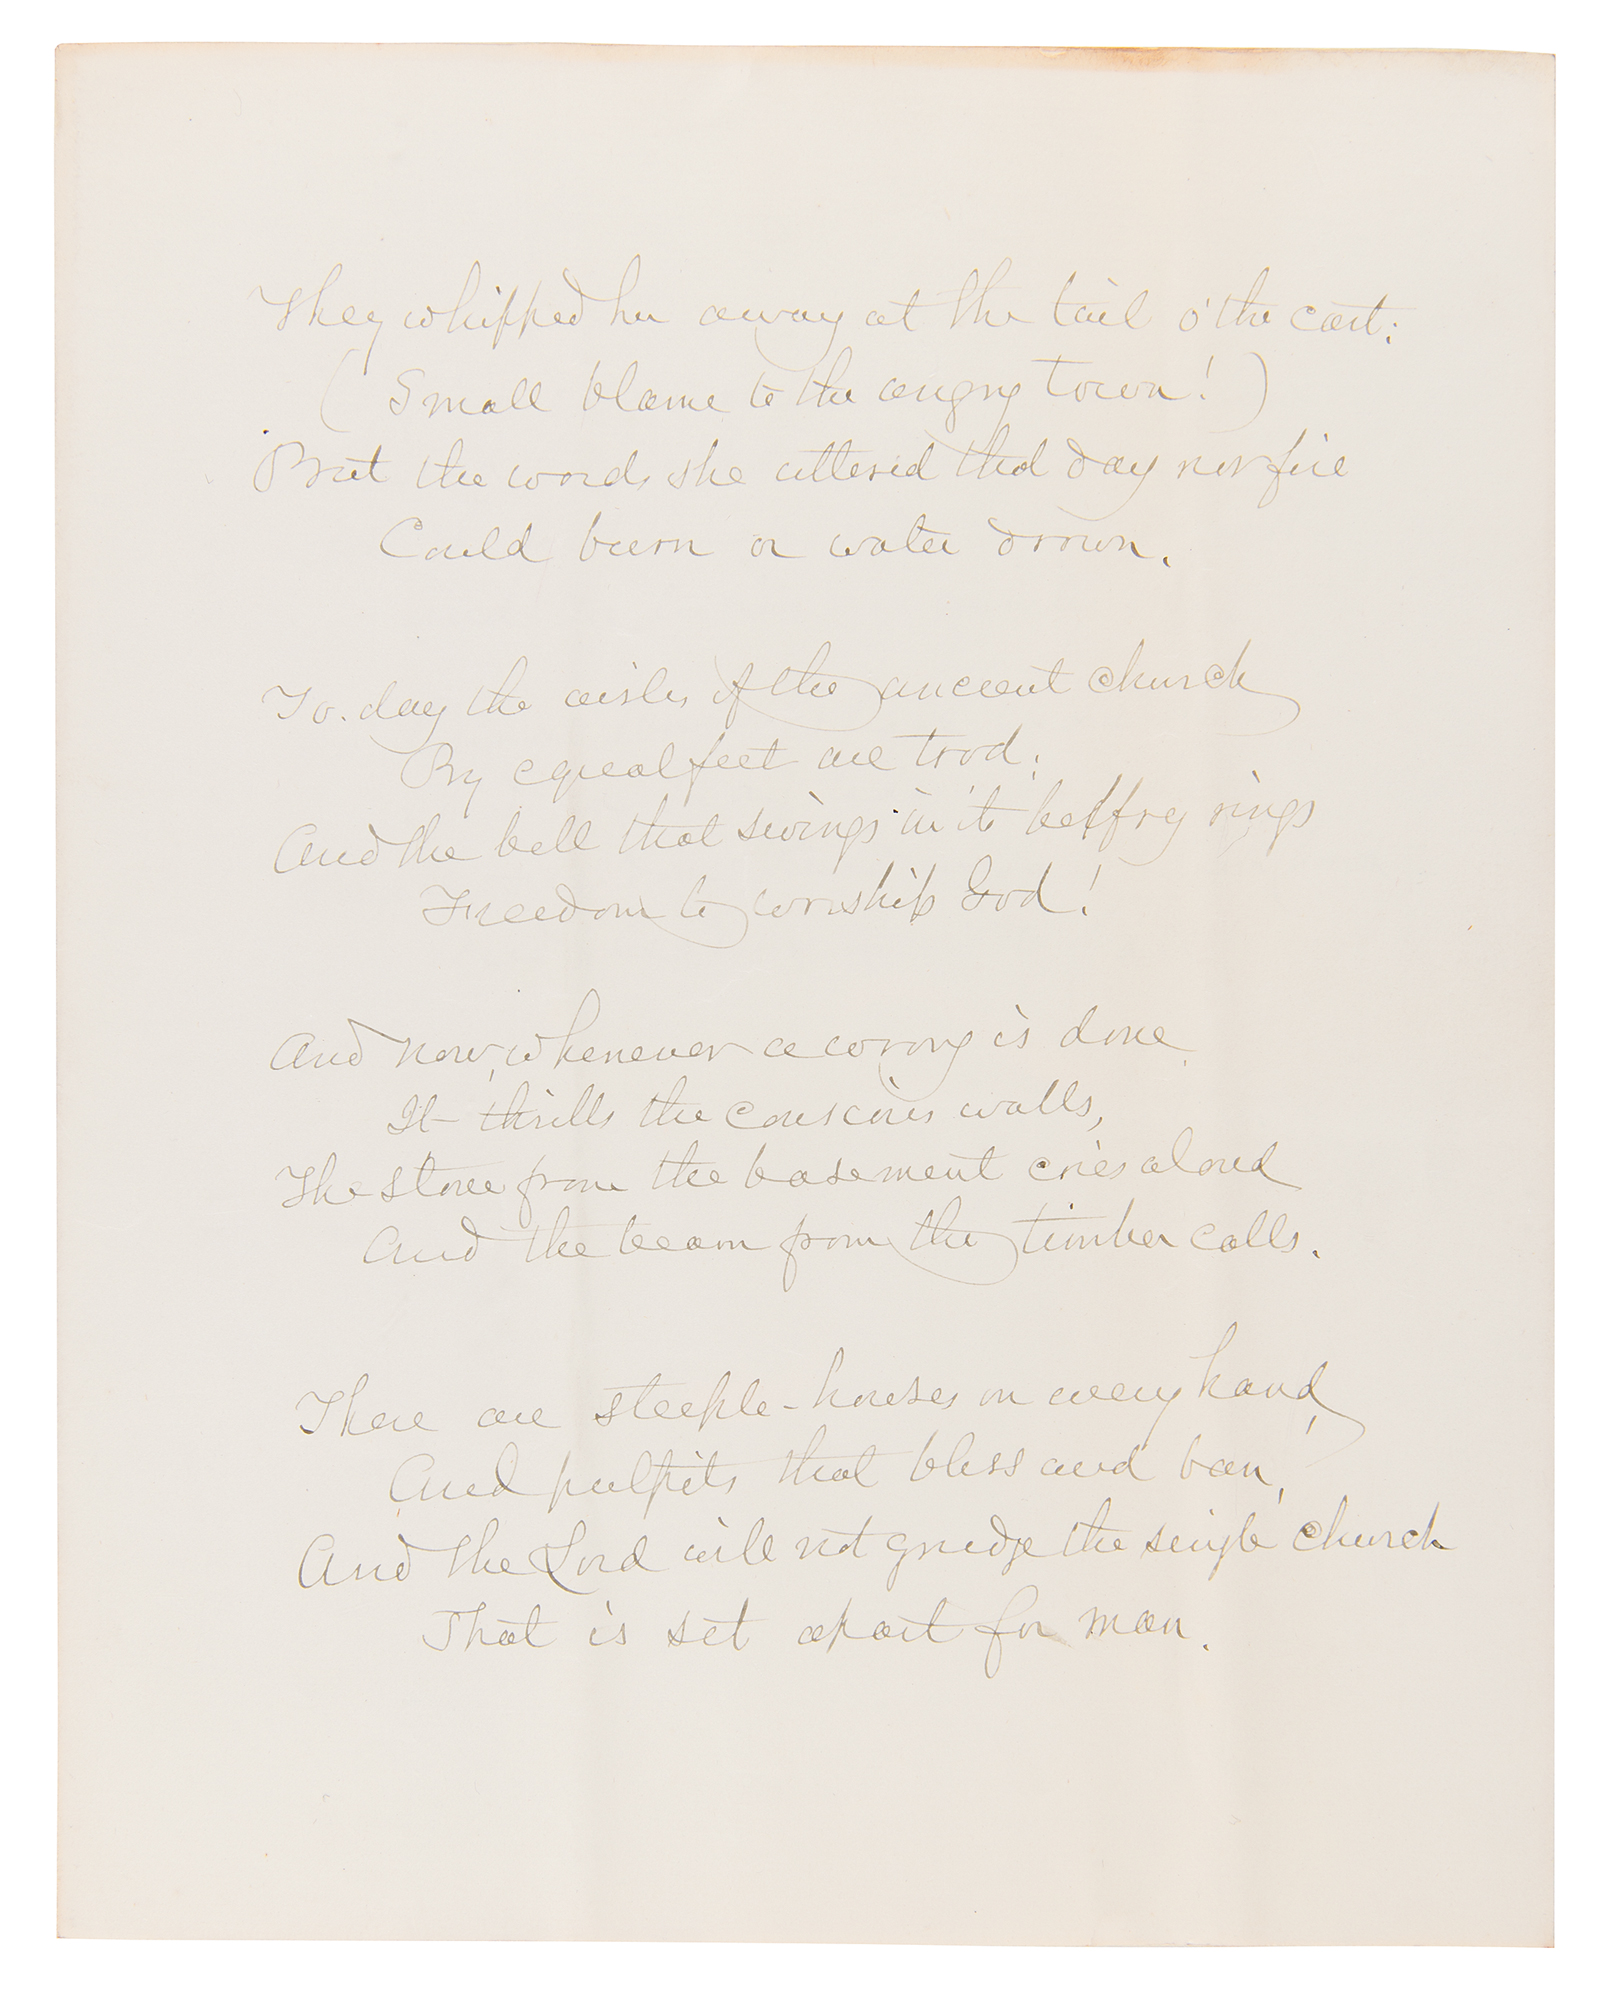 They whipped her away at the tail o' the cart:
(Small blame to the angry town!)
But the words she uttered that day nor fire
Could burn or water drown.
To-day the aisles of the ancient church
By equal feet are trod;
And the bell that swings in its belfry rings
Freedom to worship God!
And now, whenever a wrong is done
It thrills the conscious walls,
The stone from the basement cries aloud
And the beam from the timber calls.
There are steeple-houses on every hand,
And pulpits that bless and ban,
And the Lord will not grudge the single church
That is set apart for man.